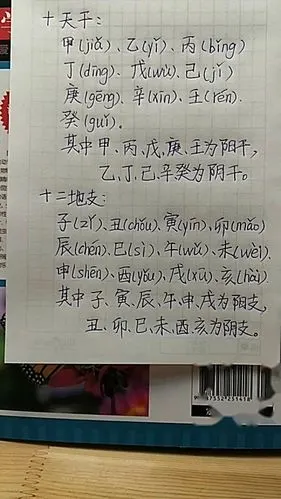 十天干:
甲(jiǎ)、乙(yǐ)、丙(bǐng)
丁(dīng)、戊(wù)、己(jǐ)
庚(gēng)、辛(xīn)、壬(rén).
癸(guǐ).
其中甲、丙、戊、庚、壬为阳干,
乙、丁、己、辛癸为阴干。
十二地支:
子(zǐ)、丑(chǒu)、寅(yín)、卯(mǎo)
辰(chén)、巳(sì)、午(wǔ)、未(wèi)、
申(shēn)、酉(yǒu)、戌(xū)、亥(hài).
其中子、寅、辰、午、申、戌为阳支,
丑、卯、巳、未、酉亥为阴支。